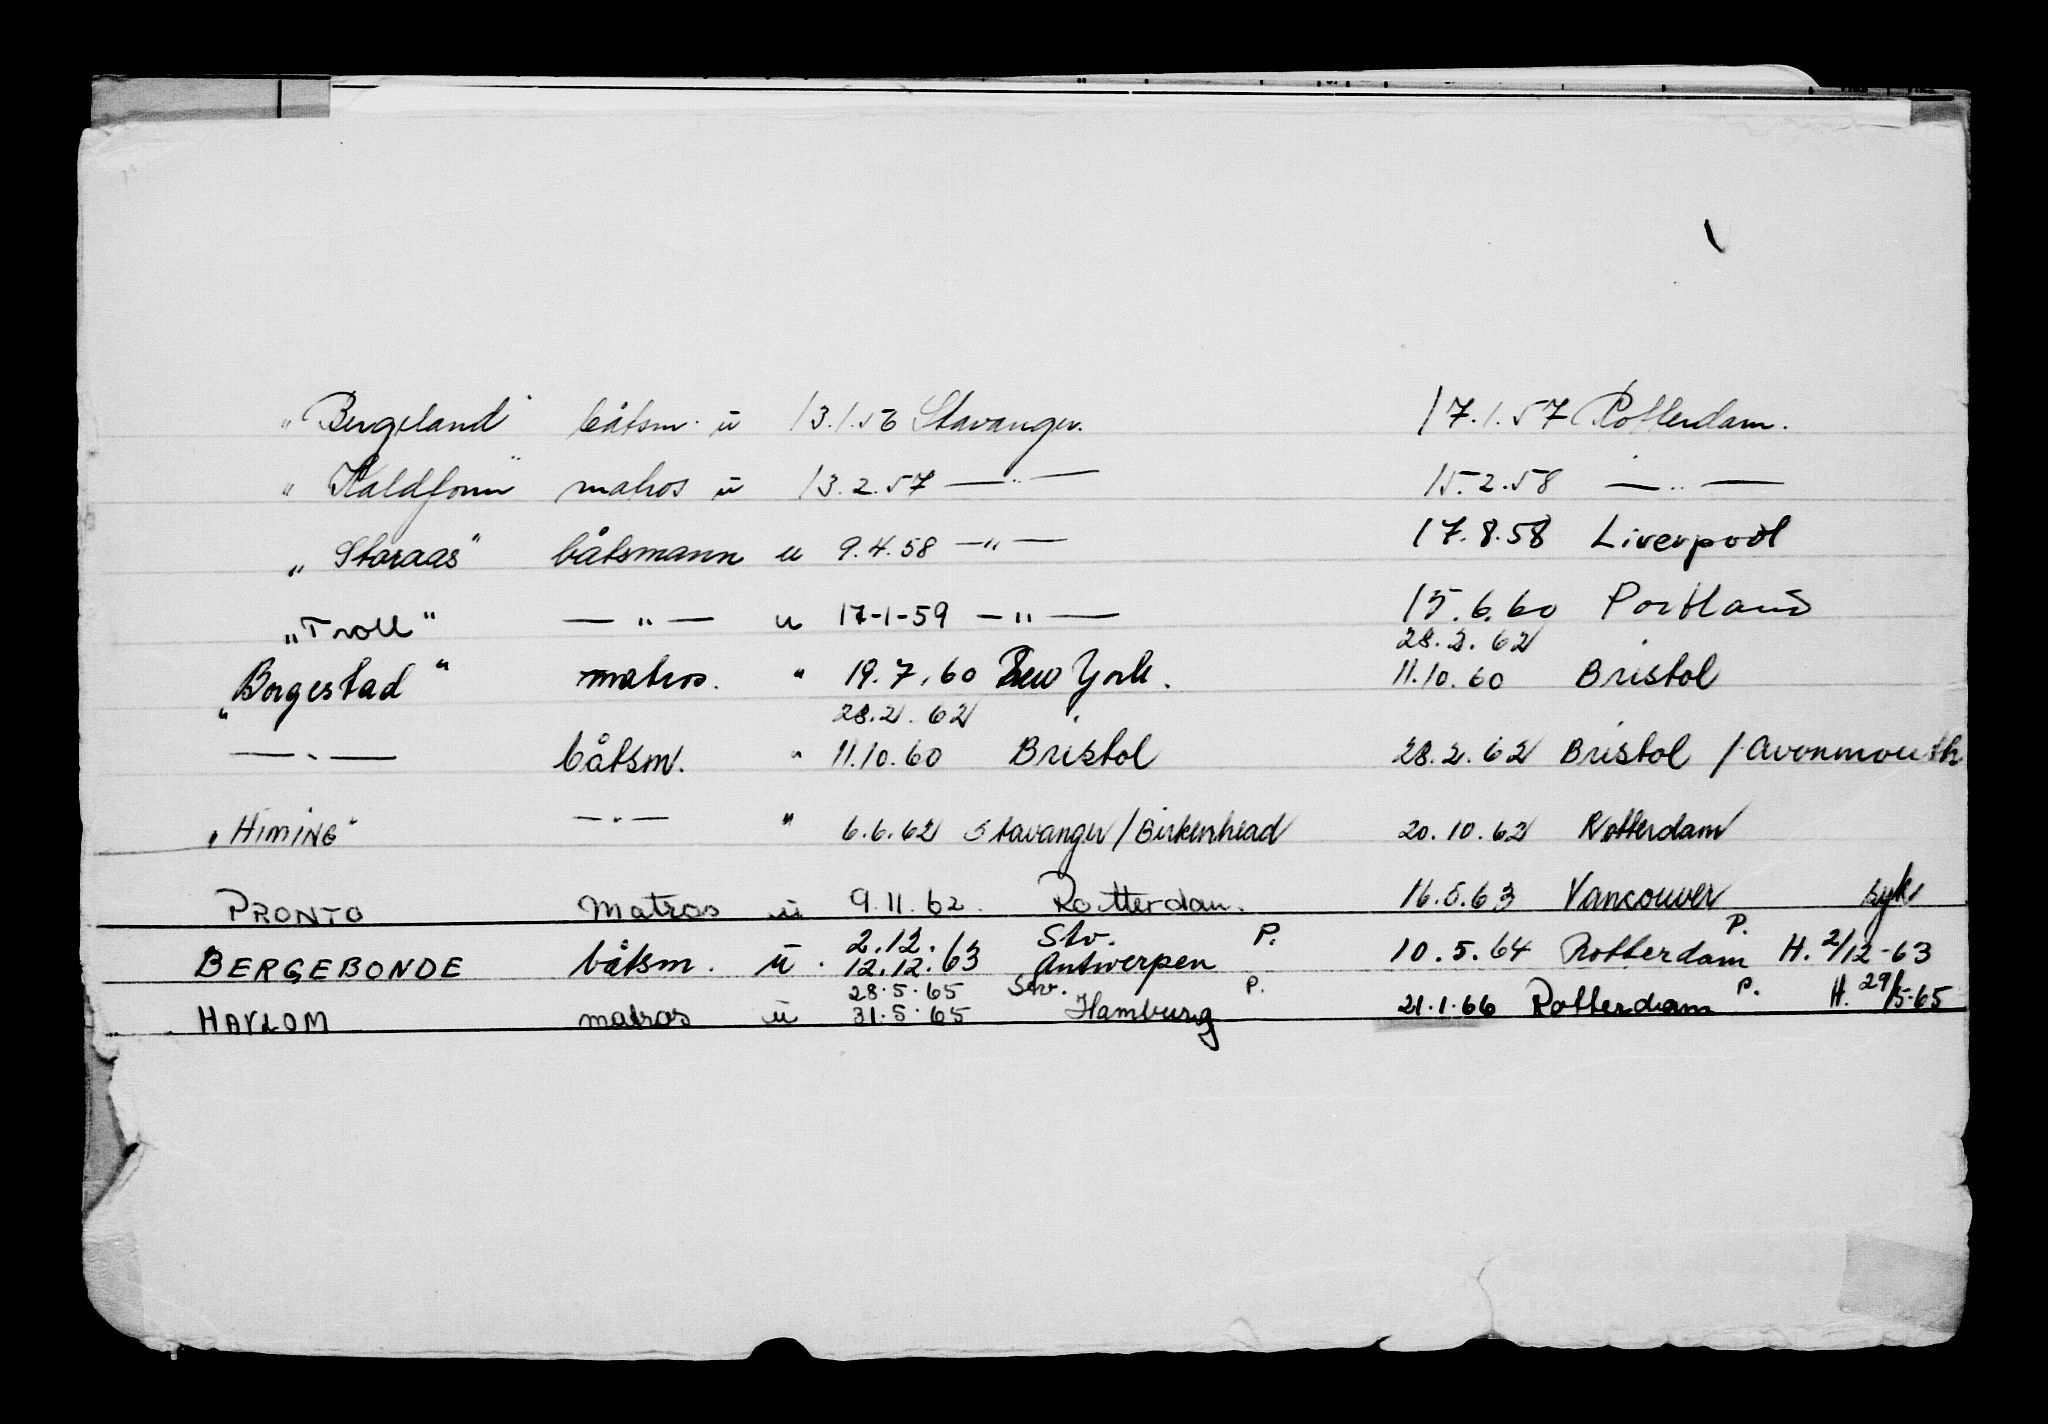 „Bergeland" båtsm. u 13.1.56 Stavanger. 17.1.57 Rotterdam.
„Kaldfonn" matros u 13.2.57 —„— 15.2.58 —„—
„Storaas" båtsmann u 9.4.58 —„— 17.8.58 Liverpool
„Troll" —„— u 17-1-59 —„— 15.6.60 Portland
28.2.62
„Borgestad" matros. " 19.7.60 New York. 11.10.60 Bristol
28.2.62
—„— båtsm. " 11.10.60 Bristol 28.2.62 Bristol / Avonmouth
„HIMING" —„— " 6.6.62 Stavanger/Birkenhead 20.10.62 Rotterdam
PRONTO Matros u 9.11.62. Rotterdam. 16.5.63 Vancouver syk
2.12.63 Stv. P. P.
BERGEBONDE båtsm. u. 12.12.63 Antwerpen 10.5.64 Rotterdam H. 2/12-63
28.5.65 Stv. P. P.
HAVLOM matros u 31.5.65 Hamburg 21.1.66 Rotterdam H. 29/5-65